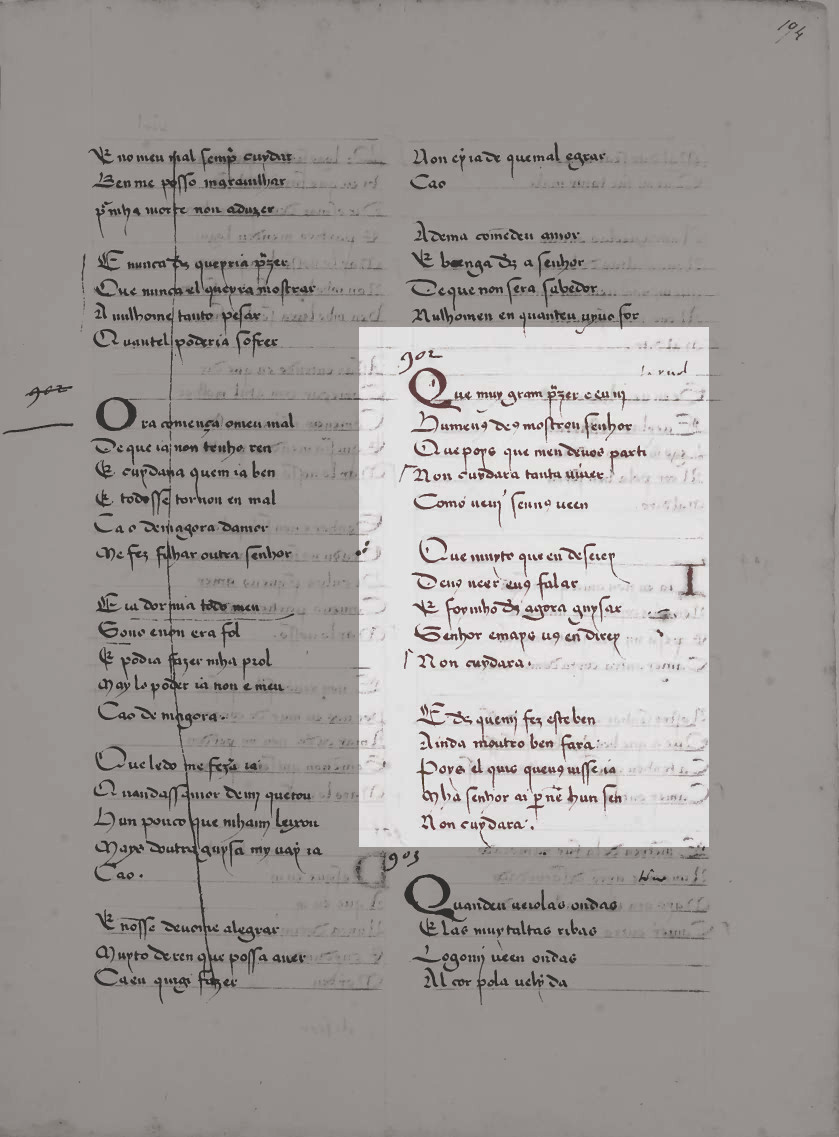 104
E no meu mal semp̃ cuydar
Ben me posso ingranilhar
p̃ mha morte non aduzer
E nunca d̃s querria p̃zer
Que nunca el queyra mostrar
A nulhome tanto pesar
Quantel poderia sofrer
902
Ora começa o meu mal
De que ia non tenho ren
E cuydaua quem ia ben
E todosse tornon en mal
Ca o demagora damor
Me fez filhar outra senhor
E ia dormia todo meu
Sono e non era fol
E podia fazer mha prol
May lo poder ia non e meu
Cao de magora.
Que ledo me ia
Quandassamor de mi quitou
Hun pouco que mham leixou
Mays doutra guysa my uay ia
Cao.
E nosse deuome alegrar
Muyto de ren que possa auer
Ca en quigi fazer
Non ey ia de que mal egrar
Cao
Adema comedeu amor
E benga d̃s a senhor
De que non sera sabedor
Nulhomen en quanteu uyuo for
902
Que muy gram p̃zer e eu ui
Hu meu9 de9 mostrou senhor
Que poys que men deuos parti
Non cuydara tanta uiuer
Como ueui sen u9 ueer
Que muyto que en deseiey
Deu9 ueer e u9 falar
E foy mho d̃s agora guysar
Senhor e mays u9 en direy
Non cuydara.
E d̃s quemi fez este ben
Ainda moutro ben fara
Poys el quis que u9 uisse ia
Mha senhor ar p nẽ hun sen
Non cuydara.
903
Quandeu ueiolas ondas
E las muyt altas ribas
Logo mi ueen ondas
Al cor pola uelyda